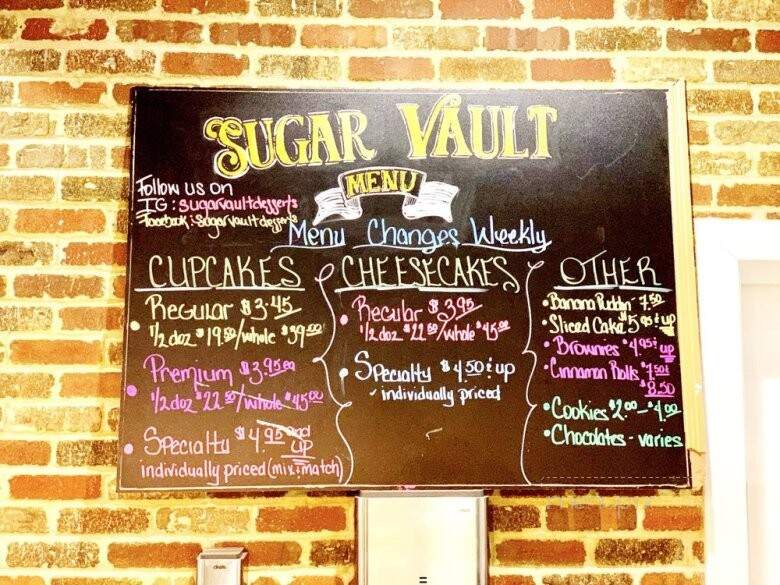 SUGAR VAULT
MENU
Follow us on
IG: sugarvaultdesserts
Facebook: Sugarvaultdesserts
Menu Changes Weekly
CUPCAKES
• Regular $3.45
1/2 doz $19.50/whole $39.00
• Premium $3.95ea
1/2 doz $22.50/whole $45.00
• Specialty $4.95 and up
individually priced (mix+match)
CHEESECAKES
• Regular $3.95
1/2 doz $22.50/whole $45.00
• Specialty $4.50 & up
✓ individually priced
OTHER
• Banana Puddin' 7.50
• Sliced Cake $5.95 & up
• Brownies $4.95+ up
• Cinnamon Rolls $7.50+
$8.50
• Cookies $2.00-$4.00
• Chocolates - varies